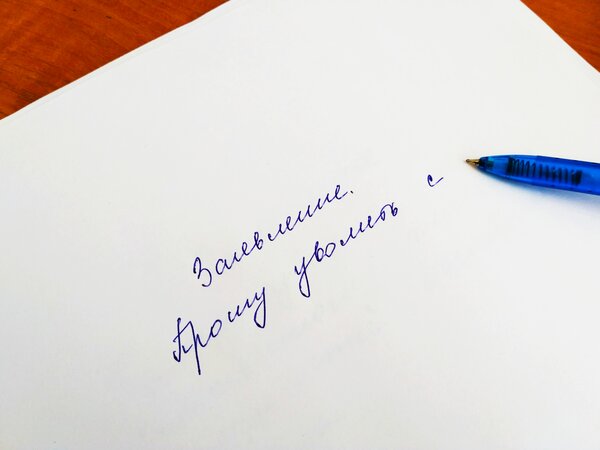 Заявление.
Прошу уволить с